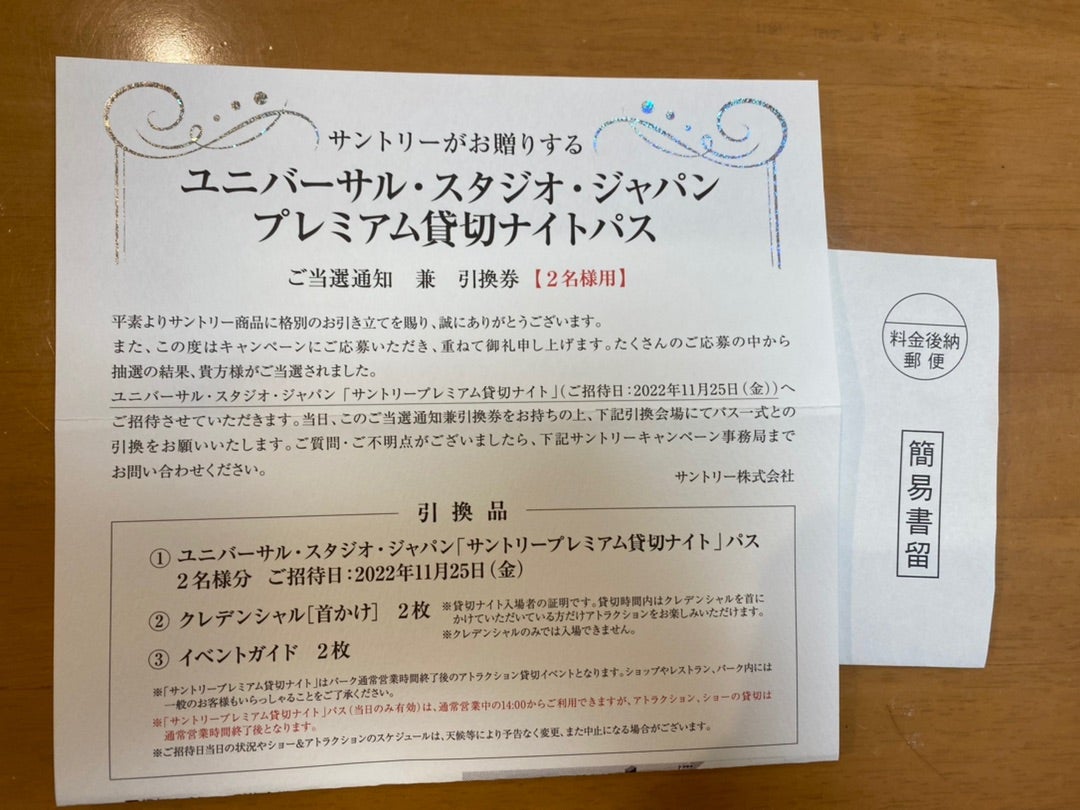 サントリーがお贈りする
ユニバーサル・スタジオ・ジャパン
プレミアム貸切ナイトパス
ご当選通知 兼 引換券【2名様用】
平素よりサントリー商品に格別のお引き立てを賜り、誠にありがとうございます。
また、この度はキャンペーンにご応募いただき、重ねて御礼申し上げます。たくさんのご応募の中から
抽選の結果、貴方様がご当選されました。
ユニバーサル・スタジオ・ジャパン「サントリープレミアム貸切ナイト」(ご招待日:2022年11月25日(金))へ
ご招待させていただきます。当日、このご当選通知兼引換券をお持ちの上、下記引換会場にてパス一式との
引換をお願いいたします。ご質問・ご不明点がございましたら、下記サントリーキャンペーン事務局まで
お問い合わせください。
サントリー株式会社
引換品
① ユニバーサル・スタジオ・ジャパン「サントリープレミアム貸切ナイト」パス
2名様分 ご招待日:2022年11月25日(金)
② クレデンシャル[首かけ] 2枚
※貸切ナイト入場者の証明です。貸切時間内はクレデンシャルを首に
かけていただいている方だけアトラクションをお楽しみいただけます。
※クレデンシャルのみでは入場できません。
③ イベントガイド 2枚
※「サントリープレミアム貸切ナイト」はパーク通常営業時間終了後のアトラクション貸切イベントとなります。ショップやレストラン、パーク内には
一般のお客様もいらっしゃることをご了承ください。
※「サントリープレミアム貸切ナイト」パス(当日のみ有効)は、通常営業中の14:00からご利用できますが、アトラクション、ショーの貸切は
通常営業時間終了後となります。
※ご招待日当日の状況やショー&アトラクションのスケジュールは、天候等により予告なく変更、また中止になる場合がございます。
料金後納
郵便
簡易書留